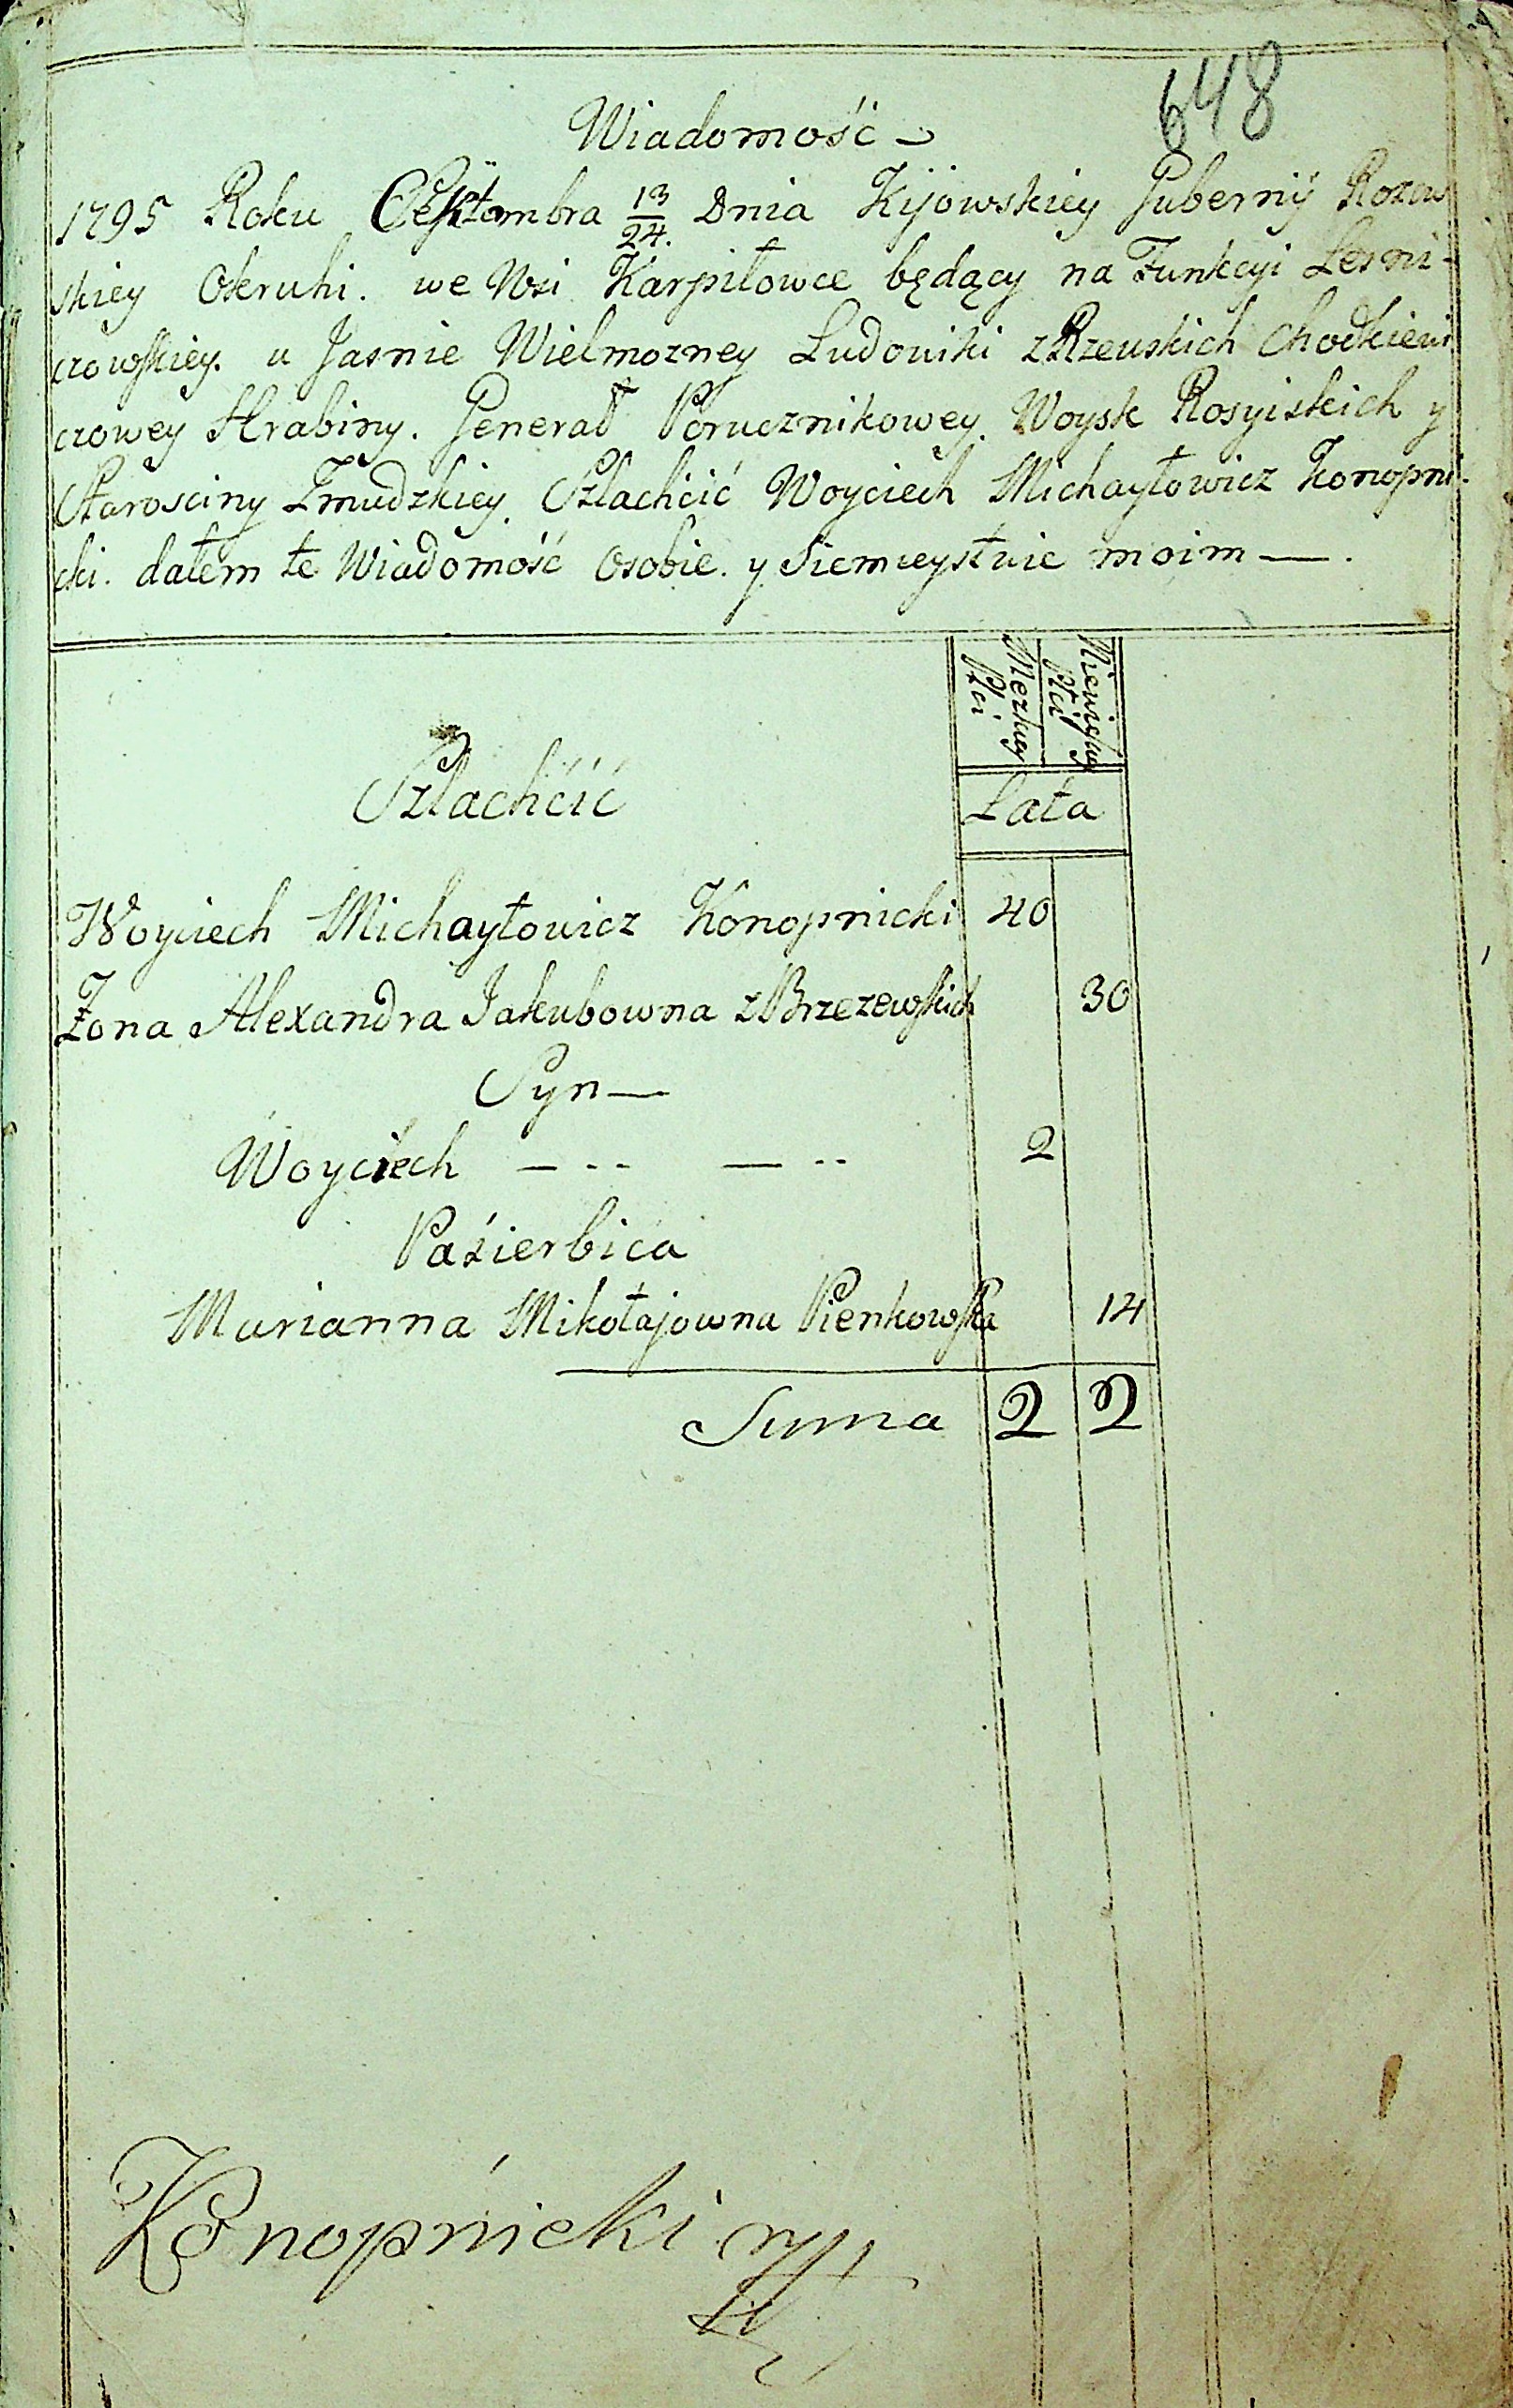 648
Wiadomość
1795 Roku Septembra 13/24. Dnia Kijowskiey Gubernij Rozew
skiey Okruhi. we Wsi Karpiłowce będący na Funkcyi Lesni-
czowskiey. u Jasnie Wielmozney Ludowiki z Rzewskich Chodkiewi
czowey Hrabiny. Generał Porucznikowey. Woysk Rosyiskich y
Starosciny Zmudzkiey. Szlachćić Woyciech Michayłowicz Konopni-
cki. dałem te Wiadomość Osobie. y Siemieystwie moim —.
Mezkiey Płci
Niewieskiey Płci
Szlachćić
Lata
Woyciech Michayłowicz Konopnicki 40
Żona Alexandra Jakubowna z Brzezewskich 30
Syn —
Woyciech — .. — .. 2
Paźierbica
Marianna Mikołajowna Pienkowska 14
Suma 2 2
Konopnicki